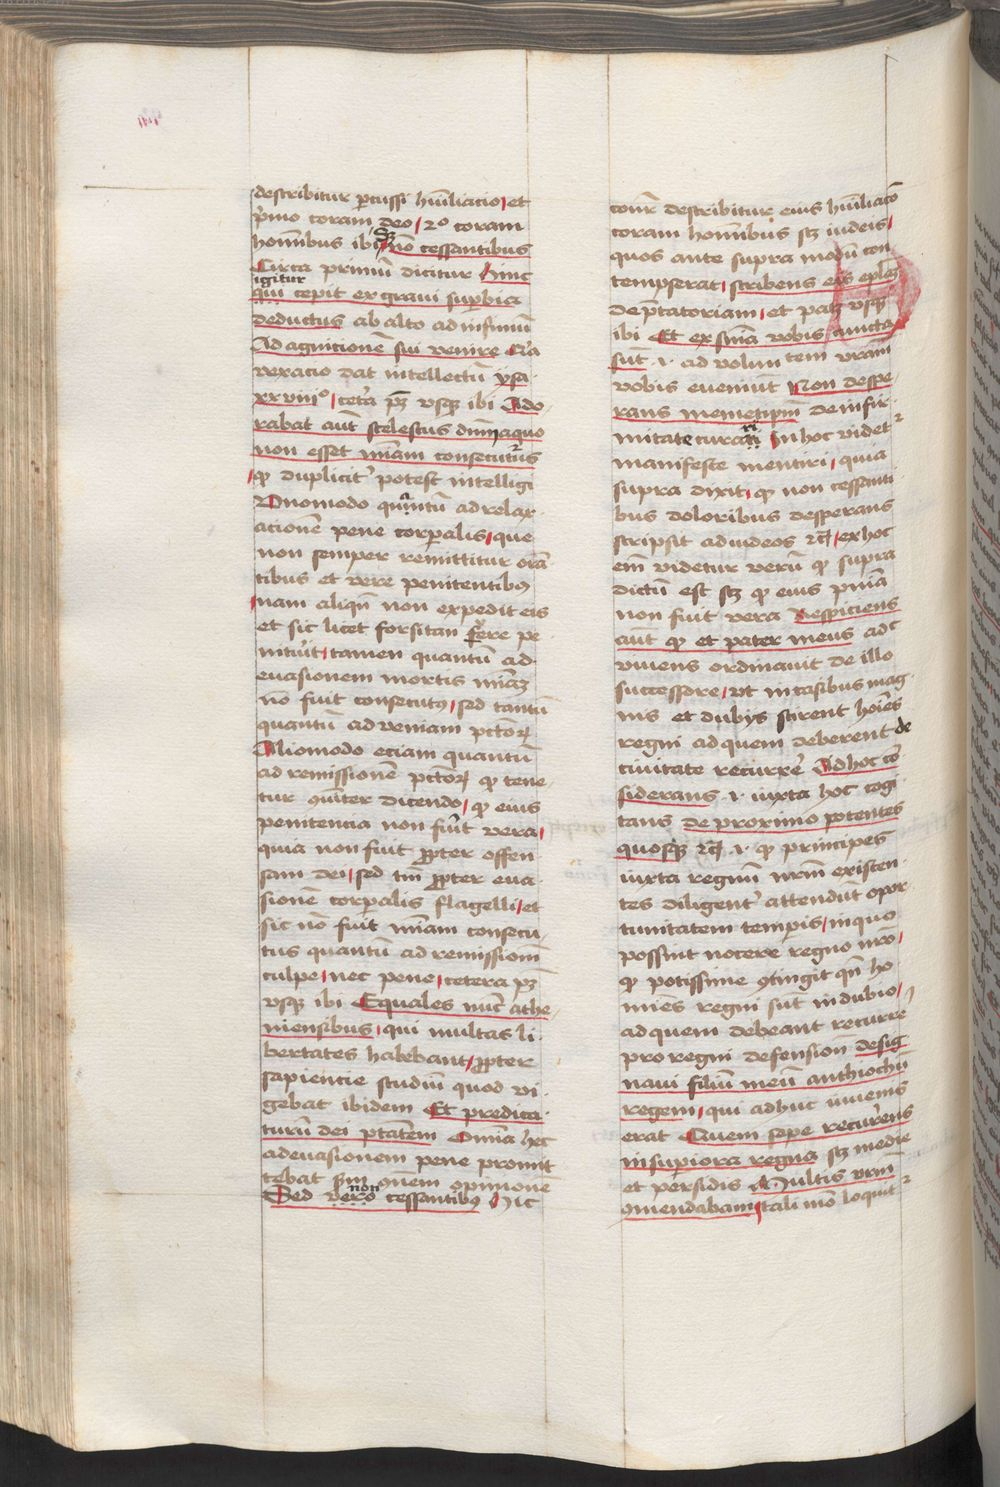 describitur percussi hūiliacio et
p̄mo coram deo / 2o coram
hominibus ibi Sꝫ nō cessantibus
Circa primū dicitur hinc
igitur
qui cepit ex graui sup̱bia
deductus ab alto ad infimū
Ad agnitionē sui venire Q̄a
vexacio dat intellectū ysa
xxviiio / ceta pꝫ vsqꝫ ibi Ado
rabat aūt scelestus dūm a quo
non esset m̄iam consecuturus
qꝫ duplicit̓ potest intelligi
Vnomodo quantū ad relax
acionē pene corꝑalis / que
non semper remittitur orā
tibus et vere penitentibꝰ
nam aliqn̄ non expedit eis
et sic licet forsitan vere pe
nituit / tamen quantū ad
euasionem mortis m̄iaꝫ
nō fuit consecutꝰ / sed tantū
quantū ad veniam pctōꝝ
Aliomodo eciam quantū
ad remissionē pctōꝝ qꝫ tene
tur ꝯiter dicendo / qꝫ eius
penitencia non fuit vera /
quia non fuit ꝓpter offen
sam dei / sed tm̄ ꝓpter eua
sionē corꝑalis flagelli / et
sic nō fuit m̄iam consecu
tus quantū ad remissionē
culpe / nec pene / cetera pꝫ
vsqꝫ ibi Equales nūc athe
niensibus / qui multas li
bertates habebant / ꝓpter
sapiencie studiū quod vi
gebat ibidem Et predica
turū dei ptātem Omīa hec
ad euasionem pene promit
tebat sm̄ quem opinionē
non
Sed vero cessantibꝰ Hic
describitur eius hūiliacō
coram hominibus sꝫ iudeis /
quos ante supra modū con
tempserat / scribens eis eplaꝫ
depcatoriam / et patꝫ vsqꝫ
ibi Et ex sn̄ia vobis cuncta
sūt .i. ad voluntatem vram
vobis eueniūt Non despe
rans memetipm̄ de infir
mitate curari In hoc videt2
manifeste mentiri / quia
supra dixit / qꝫ non cessanti
bus doloribus desperans
scripsit ad iudeos 2c̄ / ex hoc
em̄ videtur verū qꝫ supra
dictū est sꝫ qꝫ eius pn̄ia
non fuit vera Respiciens
aūt qꝫ et pater meus adc
viuens ordinauit de illo
successore / vt in casibus mag
nis et dubijs scirent hoīes
regni ad quem deberent de
ciuitate recurrē Ad hoc cō
siderans .i. iuxta hoc cogi
tans de proximo potentes
quosqꝫ 2c̄ .i. qꝫ principes
iuxta regnū nrm̄ existen
tes diligent̓ attendūt opor
tunitatem temporis / in quo
possint nocere regno nrō /
qꝫ potissime ꝯtingit qn̄ ho
mīes regni sūt in dubio /
ad quem debeant recurre
pro regni defension desig
naui filiū meū anthiochū
regem / qui adhuc iuuenis
erat Quem sepe recurrens
in superiora regna sꝫ medie
et persidis Multis vrm̄
ꝯmendabam / tali mō loquit2